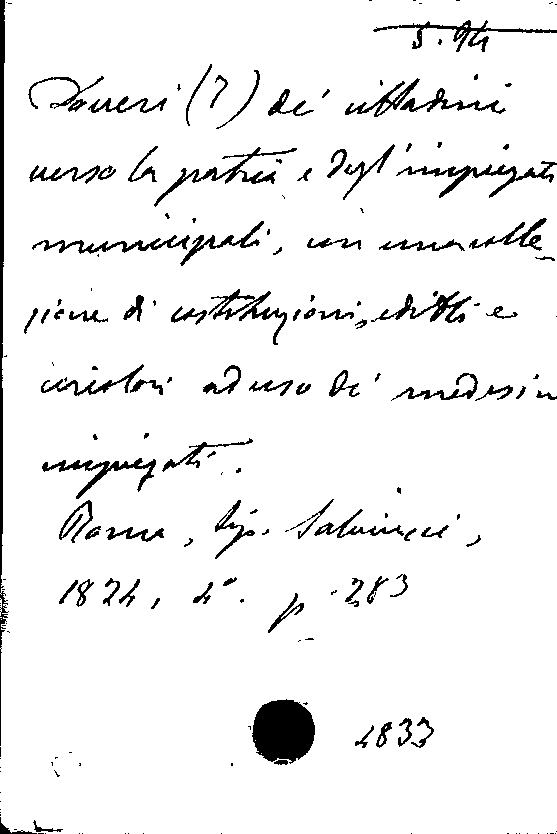 5.94
Doveri (?) de' cittadini
verso la patria e degl'impiegati
municipali, con una colle-
zione di costituzioni, editti e
circolari ad uso de' medesim
impiegati.
Roma, tip. Salviucci,
1824, 4°. p. 283
4833